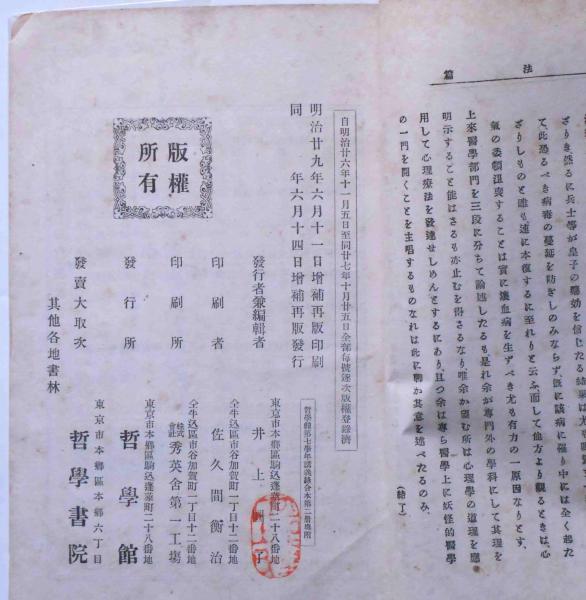 法篇
ざりき然るに兵士等が皇子の
て此恐るべき病毒の蔓延を防ぎしのみならず既に該病に罹り中には全く起た
ざりしものと雖も速に本復するに至れりと云ふ、而して他方より觀るときは、心
氣の委頓沮喪することは實に壞血病を生ずべき尤も有力の一原因なりとす、
上來醫學部門を三段に分ちて論述したるも是れ余が專門外の學科にして其理を
明示すること能はざるも亦止むを得ざるなり、唯余が望む所は心理學の道理を應
用して心理療法を發達せしめんとするにあり、且つ余は專ら醫學上に妖怪的醫學
の一門を開くことを主唱するものなれば此に聊か其意を述べたるのみ、
(結了)
自明治廿六年十一月五日至同廿七年十月廿五日全部每號逐次版權登錄濟
哲學館第七學年講義錄合本第二册
明治廿九年六月十一日增補再版印刷
同年六月十四日增補再版發行
版權所有
發行者兼編輯者
東京市本鄉區駒込蓬萊町二十八番地
井上
印刷者
仝牛込區市谷加賀町一丁目十二番地
佐久間衡治
印刷所
仝牛込區市谷加賀町一丁目十二番地
株式會社秀英舍第一工場
發行所
東京市本鄉區駒込蓬萊町二十八番地
哲學館
發賣大取次
東京市本鄉區本鄉六丁目
哲學書院
其他各地書林